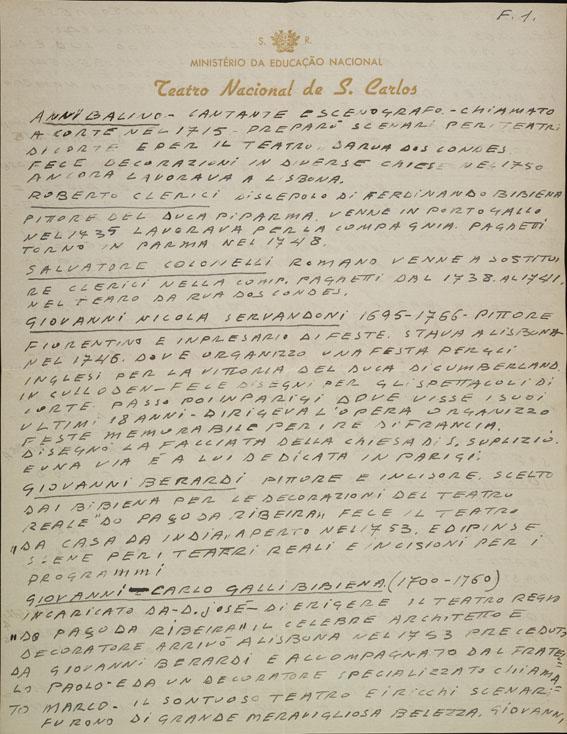 F. 1.
S. R.
MINISTÉRIO DA EDUCAÇÃO NACIONAL
Teatro Nacional de S. Carlos
ANNIBALINO - CANTANTE E SCENOGRAFO. - CHIAMATO
A CORTE NEL 1715 - PREPARÒ SCENARI PER I TEATRI
DI CORTE E PER IL TEATRO DA RUA DOS CONDES
FECE DECORAZIONI IN DIVERSE CHIESE NEL 1750
ANCORA LAVORAVA A LISBONA.
ROBERTO CLERICI DISCEPOLO DI FERDINANDO BIBIENA
PITTORE DEL DUCA DI PARMA. VENNE IN PORTOGALLO
NEL 1735 LAVORAVA PER LA COMPAGNIA. PAGHETTI
TORNÒ IN PARMA NEL 1748.
SALVATORE COLONELLI ROMANO VENNE A SOSTITUI
RE CLERICI NELLA COMP. PAGHETTI DAL 1738. AL 1741.
NEL TEARO DA RUA DOS CONDES.
GIOVANNI NICOLA SERVANDONI 1695-1766- PITTORE
FIORENTINO E INPRESARIO DI FESTE. STAVA A LISBONA
NEL 1746. DOVE ORGANIZZO UNA FESTA PER GLI
INGLESI PER LA VITTORIA DEL DUCA DI CUMBERLAND.
IN CULLODEN - FECE DISEGNI PER GLI SPETTACOLI DI
CORTE. PASSO POI IN PARIGI DOVE VISSE I SUOI
ULTIMI 18 ANNI - DIRIGEVA L'OPERA ORGANIZZO
FESTE MEMORABILE PER I RE DI FRANCIA.
DISEGNÒ LA FACCIATA DELLA CHIESA DI S. SUPLIZIO.
E UNA VIA È A LUI DEDICATA IN PARIGI.
GIOVANNI BERARDI PITTORE E INCISORE. SCELTO
DAI BIBIENA PER LE DECORAZIONI DEL TEATRO
REALE "DO PAÇO DA RIBEIRA" FECE IL TEATRO
"DA CASA DA INDIA" APERTO NEL 1753. E DIPINSE
SCENE PER I TEATRI REALI E INCISIONI PER I
PROGRAMMI
GIOVANNI - CARLO GALLI BIBIENA. (1700-1760)
INCARICATO DA - D. JOSÉ - DI ERIGERE IL TEATRO REGIO
"DO PAÇO DA RIBEIRA" IL CELEBRE ARCHITETTO E
DECORATORE ARRIVÒ A LISBONA NEL 1753 PRECEDUTO
DA GIOVANNI BERARDI E ACCOMPAGNATO DAL FRATEL
LO PAOLO - E DA UN DECORATORE SPECIALIZZATO CHIAMA
TO MARCO - IL SONTUOSO TEATRO E I RICCHI SCENARI
FURONO DI GRANDE MERAVIGLIOSA BELEZZA. GIOVANNI